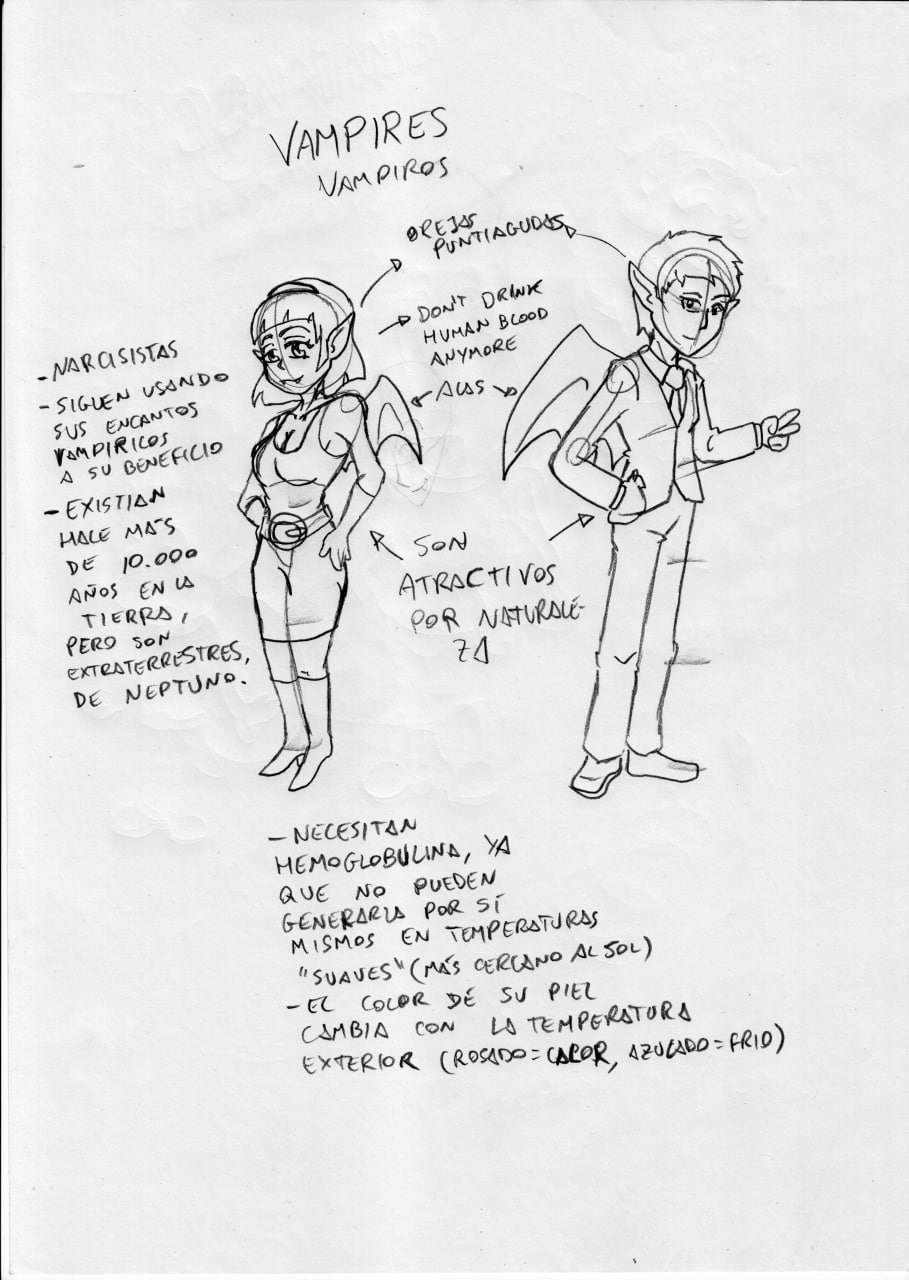 VAMPIRES
VAMPIROS
OREJAS
PUNTIAGUDAS
DON'T DRINK
HUMAN BLOOD
ANYMORE
ALAS
- NARCISISTAS
- SIGUEN USANDO
SUS ENCANTOS
VAMPIRICOS
A SU BENEFICIO
- EXISTIAN
HACE MÁS
DE 10.000
AÑOS EN LA
TIERRA,
PERO SON
EXTRATERRESTRES,
DE NEPTUNO.
SON
ATRACTIVOS
POR NATURALE-
ZA
- NECESITAN
HEMOGLOBULINA, YA
QUE NO PUEDEN
GENERARLA POR SÍ
MISMOS EN TEMPERATURAS
"SUAVES" (MÁS CERCANO AL SOL)
- EL COLOR DE SU PIEL
CAMBIA CON LA TEMPERATURA
EXTERIOR (ROSADO=CALOR, AZULADO=FRIO)